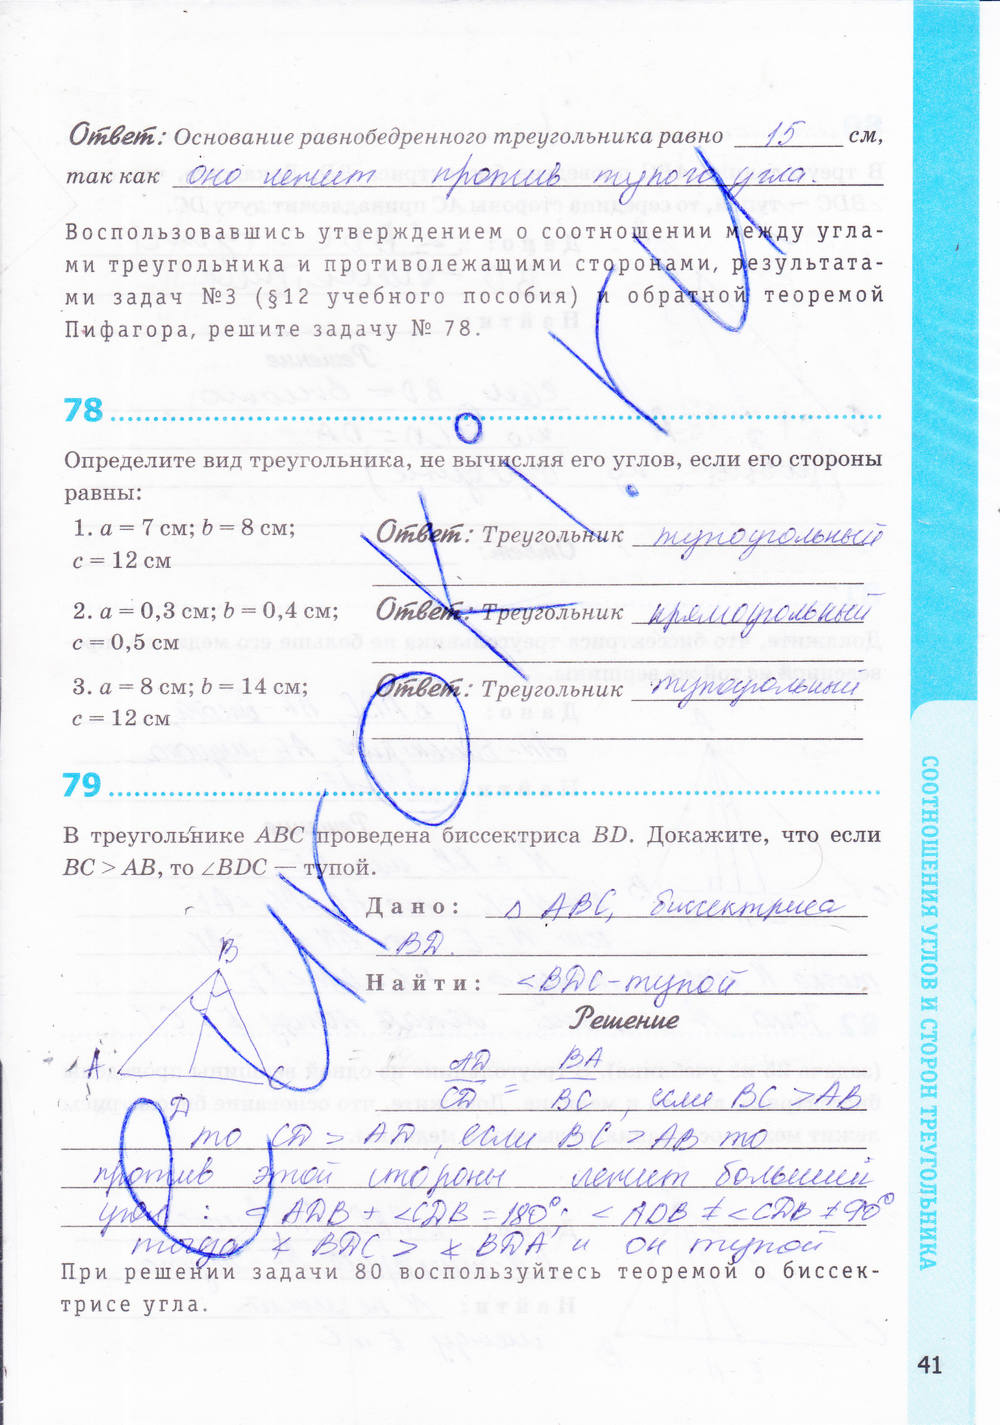 Ответ: Основание равнобедренного треугольника равно 15 см,
так как оно лежит против тупого угла.
Воспользовавшись утверждением о соотношении между угла-
ми треугольника и противолежащими сторонами, результата-
ми задач №3 (§12 учебного пособия) и обратной теоремой
Пифагора, решите задачу № 78.
78
Определите вид треугольника, не вычисляя его углов, если его стороны
равны:
1. a = 7 см; b = 8 см;
c = 12 см
Ответ: Треугольник тупоугольный
2. a = 0,3 см; b = 0,4 см;
c = 0,5 см
Ответ: Треугольник прямоугольный
3. a = 8 см; b = 14 см;
c = 12 см
Ответ: Треугольник тупоугольный
79
В треугольнике ABC проведена биссектриса BD. Докажите, что если
BC > AB, то ∠BDC — тупой.
Дано: △ ABC, биссектриса
BD.
Найти: <BDC-тупой
Решение
B
A
D
AD/CD = BA/BC, если BC > AB
то CD > AD, если BC > AB то
против этой стороны лежит больший
угол : < ADB + <CDB = 180°; < ADB ≠ <CDB ≠ 90°
тогда ∢ BDC > ∢ BDA и он тупой
При решении задачи 80 воспользуйтесь теоремой о биссек-
трисе угла.
СООТНОШЕНИЯ УГЛОВ И СТОРОН ТРЕУГОЛЬНИКА
41
©UKROKI.RU